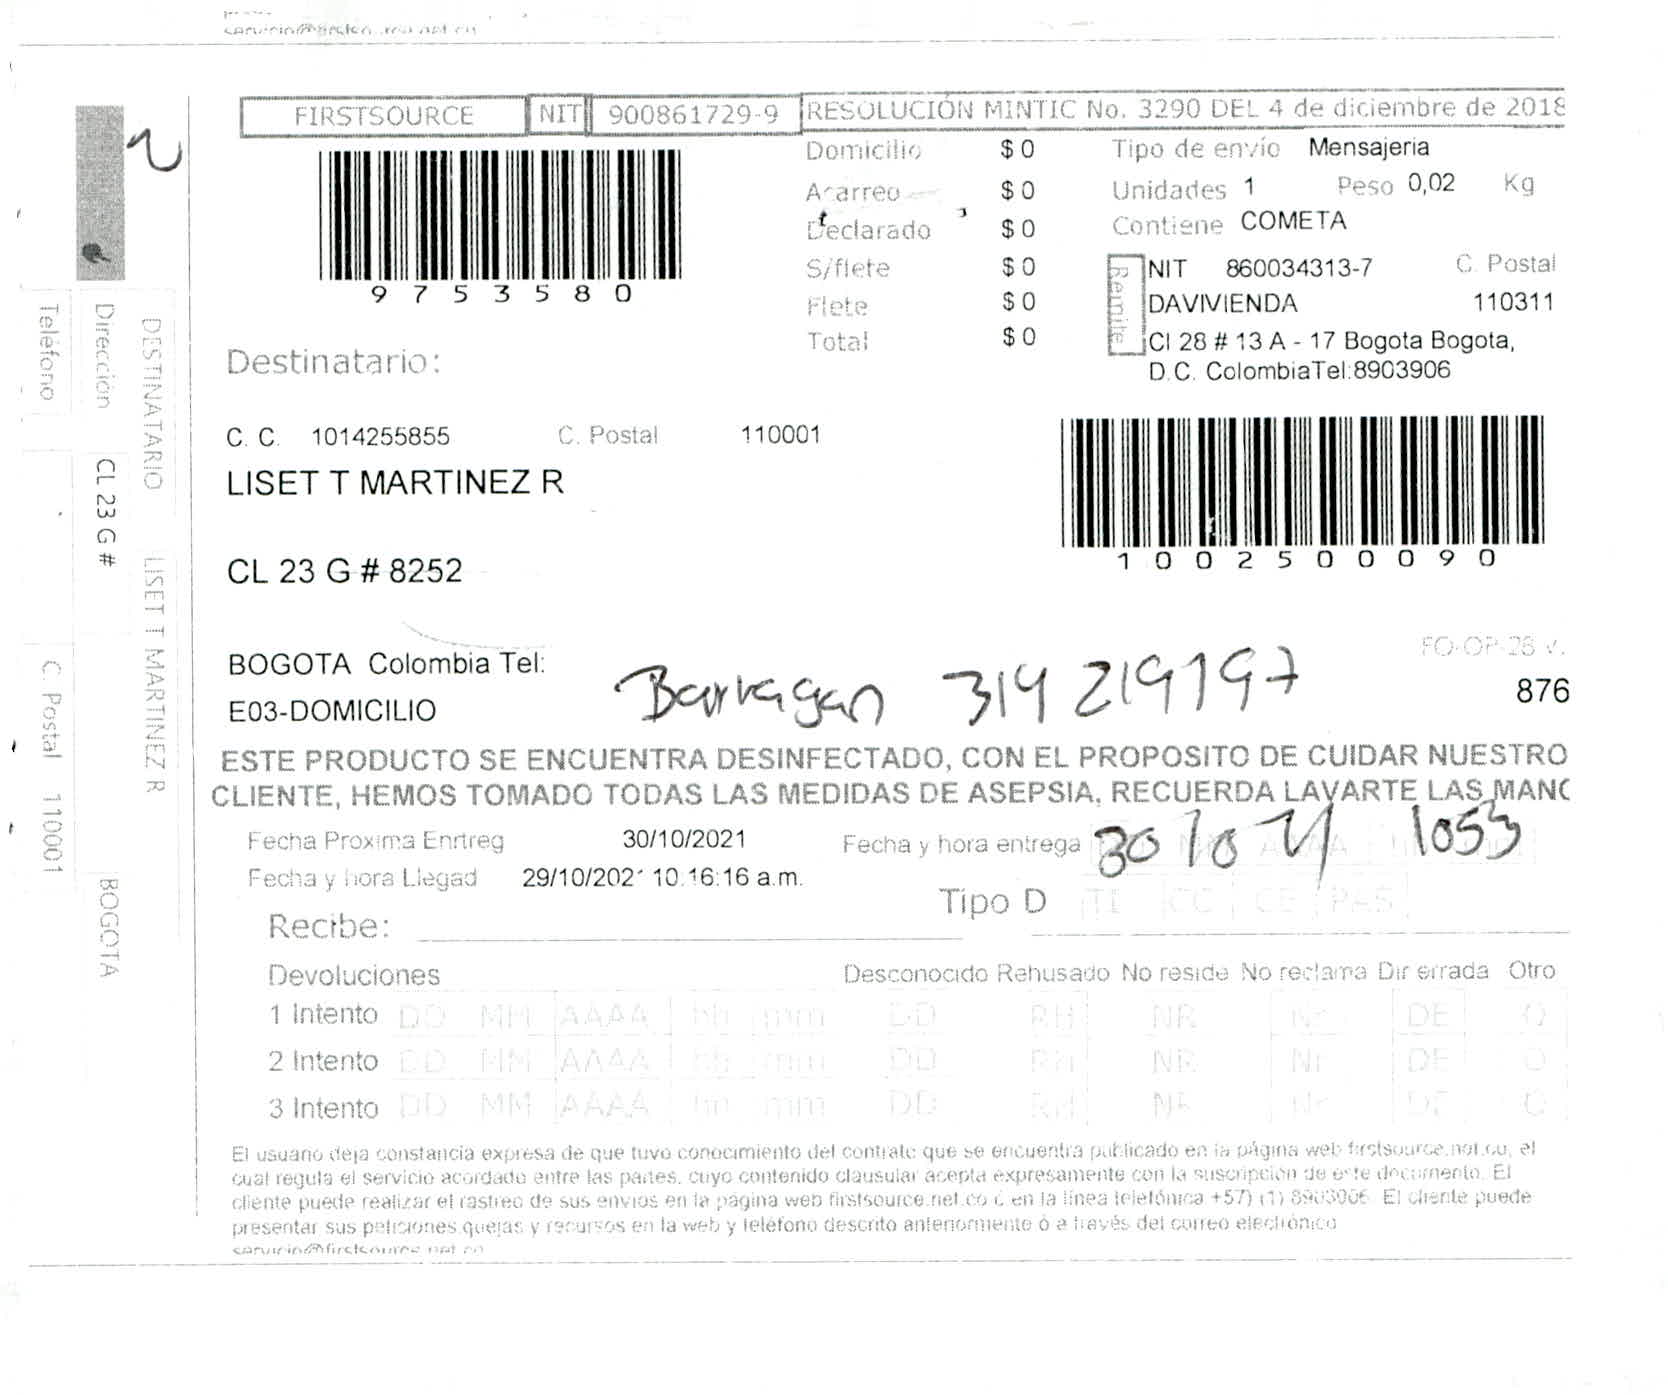 servicio@firstsource.net.co
FIRSTSOURCE NIT 900861729-9 RESOLUCIÓN MINTIC No. 3290 DEL 4 de diciembre de 2018
9753580
Domicilio $ 0
Acarreo $ 0
Declarado $ 0
S/flete $ 0
Flete $ 0
Total $ 0
Tipo de envío Mensajeria
Unidades 1 Peso 0,02 Kg
Contiene COMETA
Remite
NIT 860034313-7 C. Postal
DAVIVIENDA 110311
Cl 28 # 13 A - 17 Bogota Bogota,
D.C. ColombiaTel:8903906
Destinatario:
C. C. 1014255855 C. Postal 110001
LISET T MARTINEZ R
1002500090
CL 23 G # 8252
BOGOTA Colombia Tel:
E03-DOMICILIO
Barragan 314 219197
FO-OP-28 v.
876
ESTE PRODUCTO SE ENCUENTRA DESINFECTADO, CON EL PROPOSITO DE CUIDAR NUESTRO
CLIENTE, HEMOS TOMADO TODAS LAS MEDIDAS DE ASEPSIA, RECUERDA LAVARTE LAS MANO
Fecha Proxima Enrtreg 30/10/2021
Fecha y hora entrega 30 10 21 1053
Fecha y hora Llegad 29/10/2021 10:16:16 a.m.
Tipo D TI CC CE PAS
Recibe:
Devoluciones Desconocido Rehusado No reside No reclama Dir errada Otro
1 Intento DD MM AAAA hh mm DD RH NR Nr DE O
2 Intento DD MM AAAA hh mm DD RH NR Nr DE O
3 Intento DD MM AAAA hh mm DD RH NR Nr DE O
El usuario deja constancia expresa de que tuvo conocimiento del contrato que se encuentra publicado en la página web firstsource.net.co, el
cual regula el servicio acordado entre las partes, cuyo contenido clausular acepta expresamente con la suscripción de este documento. El
cliente puede realizar el rastreo de sus envios en la página web firstsource.net.co ó en la línea telefónica +57) (1) 8903906. El cliente puede
presentar sus peticiones quejas y recursos en la web y teléfono descrito anteriormente ó a través del correo electrónico
servicio@firstsource.net.co
DESTINATARIO LISET T MARTINEZ R
Dirección CL 23 G # BOGOTA
Teléfono C. Postal 110001